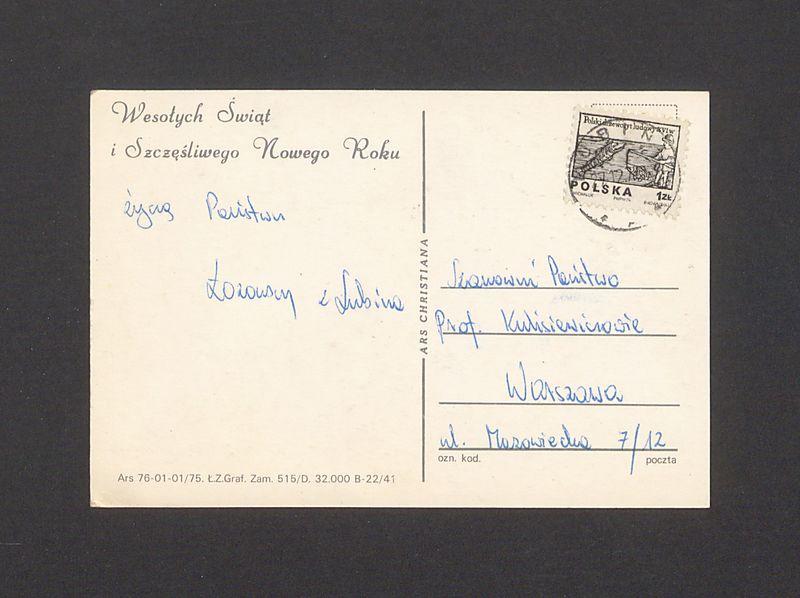 Wesołych Świąt
i Szczęśliwego Nowego Roku
życzą Państwu
z Lubina
Ars 76-01-01/75. Ł.Z.Graf. Zam. 515/D. 32.000 B-22/41
ARS CHRISTIANA
Polski drzeworyt ludowy XVI w
POLSKA 1ZŁ
Szanowni Państwo
Prof. Kulisiewiczowie
Warszawa
ul. Mazowiecka 7/12
ozn. kod. poczta